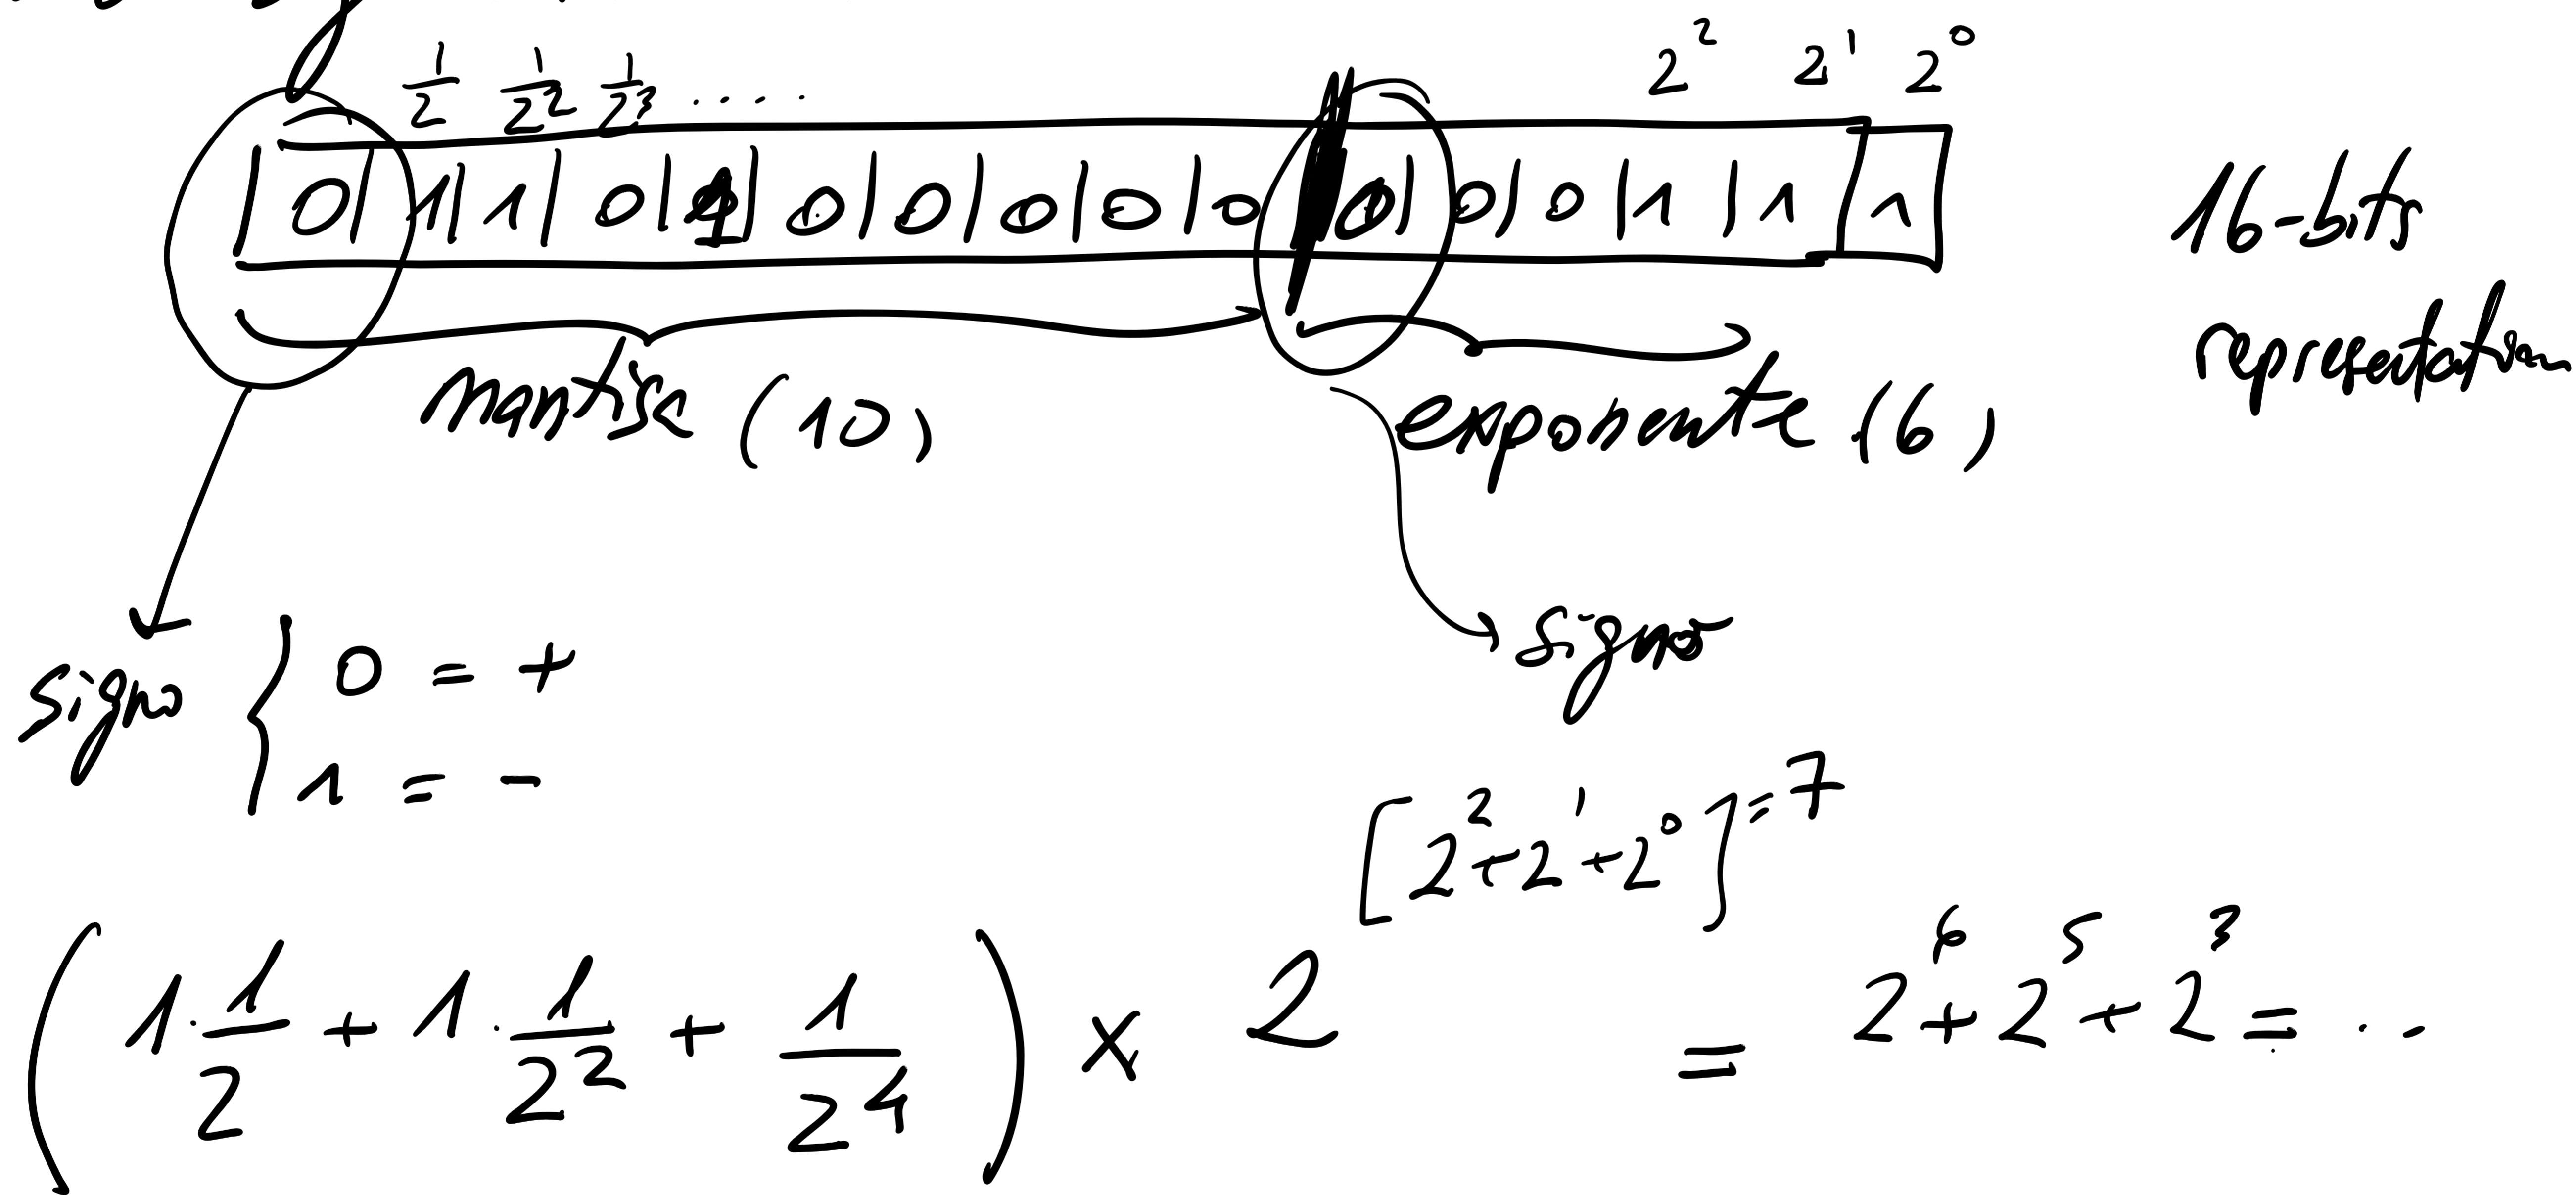 1/2 1/2² 1/2³ ..... 2² 2¹ 2⁰
|0|1|1|0|1|0|0|0|0|0 |0|0|0|1|1|1 16-bits
representation
mantisa (10) exponente (6)
signo { 0 = + signo
1 = -
(1·1/2 + 1·1/2² + 1/2⁴) × 2^[2²+2¹+2⁰]=7 = 2⁶+2⁵+2³ = ...